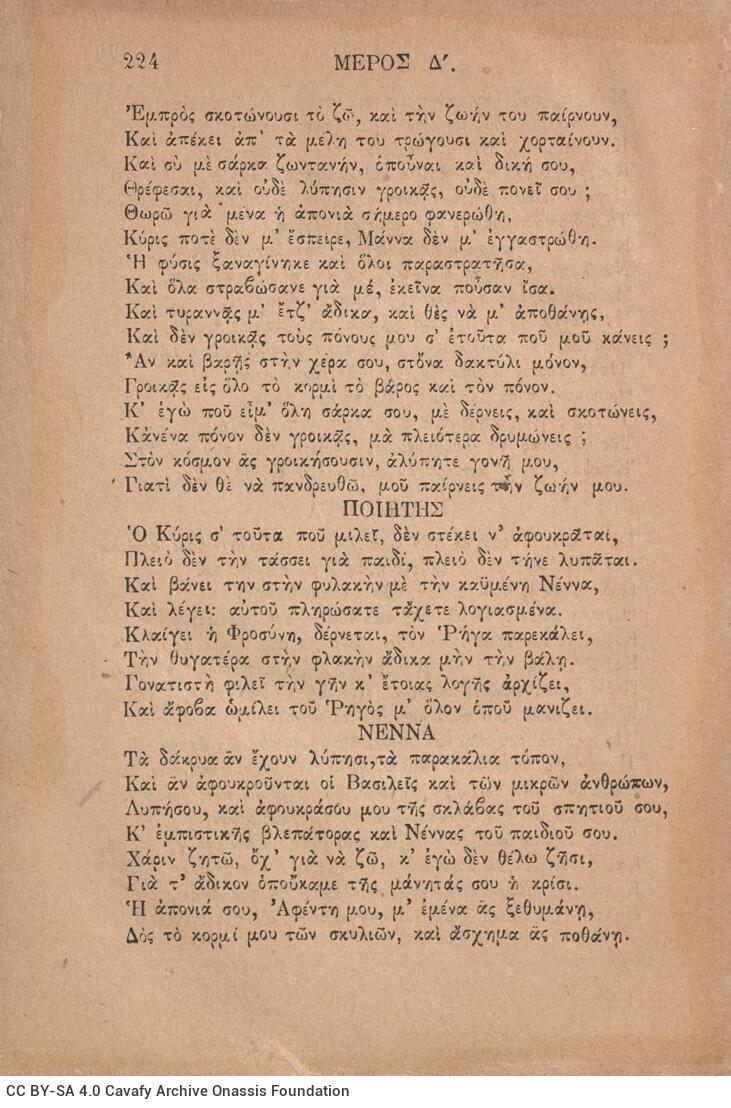 224 ΜΕΡΟΣ Δ΄.
Ἐμπρὸς σκοτώνουσι τὸ ζῶ, καὶ τὴν ζωήν του παίρνουν,
Καὶ ἀπέκει ἀπ' τὰ μέλη του τρώγουσι καὶ χορταίνουν.
Καὶ σὺ μὲ σάρκα ζωντανήν, ὁποῦναι καὶ δική σου,
Θρέφεσαι, καὶ οὐδὲ λύπησιν γροικᾷς, οὐδὲ πονεῖ σου ;
Θωρῶ γιὰ 'μένα ἡ ἀπονιὰ σήμερο φανερώθη,
Κύρις ποτὲ δὲν μ' ἔσπειρε, Μάννα δὲν μ' ἐγγαστρώθη.
Ἡ φύσις ξαναγίνηκε καὶ ὅλοι παραστρατῆσα,
Καὶ ὅλα στραβώσανε γιὰ μέ, ἐκεῖνα ποὖσαν ἴσα.
Καὶ τυραννᾷς μ' ἔτζ' ἄδικα, καὶ θὲς νὰ μ' ἀποθάνῃς,
Καὶ δὲν γροικᾷς τοὺς πόνους μου σ' ἐτοῦτα ποῦ μοῦ κάνεις ;
Ἂν καὶ βαρῇς στὴν χέρα σου, στὄνα δακτύλι μόνον,
Γροικᾷς εἰς ὅλο τὸ κορμὶ τὸ βάρος καὶ τὸν πόνον.
Κ' ἐγὼ ποῦ εἶμ' ὅλη σάρκα σου, μὲ δέρνεις, καὶ σκοτώνεις,
Κἀνένα πόνον δὲν γροικᾷς, μὰ πλειότερα δρυμώνεις ;
Στὸν κόσμον ἂς γροικήσουσιν, ἀλύπητε γονῆ μου,
Γιατὶ δὲν θὲ νὰ πανδρευθῶ, μοῦ παίρνεις τὴν ζωήν μου.
ΠΟΙΗΤΗΣ
Ὁ Κύρις σ' τοῦτα ποῦ μιλεῖ, δὲν στέκει ν' ἀφουκρᾶται,
Πλειὸ δὲν τὴν τάσσει γιὰ παιδί, πλειὸ δὲν τήνε λυπᾶται.
Καὶ βάνει την στὴν φυλακὴν μὲ τὴν καϋμένη Νέννα,
Καὶ λέγει: αὐτοῦ πληρώσατε τἄχετε λογιασμένα.
Κλαίγει ἡ Φροσύνη, δέρνεται, τὸν Ῥήγα παρεκάλει,
Τὴν θυγατέρα στὴν φλακὴν ἄδικα μὴν τὴν βάλῃ.
Γονατιστὴ φιλεῖ τὴν γῆν κ' ἔτοιας λογῆς ἀρχίζει,
Καὶ ἄφοβα ὡμίλει τοῦ Ῥηγὸς μ' ὅλον ὁποῦ μανίζει.
ΝΕΝΝΑ
Τὰ δάκρυα ἂν ἔχουν λύπησι, τὰ παρακάλια τόπον,
Καὶ ἂν ἀφουκροῦνται οἱ Βασιλεῖς καὶ τῶν μικρῶν ἀνθρώπων,
Λυπήσου, καὶ ἀφουκράσου μου τῆς σκλάβας τοῦ σπητιοῦ σου,
Κ' ἐμπιστικῆς βλεπάτορας καὶ Νέννας τοῦ παιδιοῦ σου.
Χάριν ζητῶ, ὄχ' γιὰ νὰ ζῶ, κ' ἐγὼ δὲν θέλω ζῆσι,
Γιὰ τ' ἄδικον ὁποὔκαμε τῆς μάνητάς σου ἡ κρίσι.
Ἡ ἀπονιά σου, Ἀφέντη μου, μ' ἐμένα ἂς ξεθυμάνῃ,
Δὸς τὸ κορμί μου τῶν σκυλιῶν, καὶ ἄσχημα ἂς ποθάνῃ.
CC BY-SA 4.0 Cavafy Archive Onassis Foundation